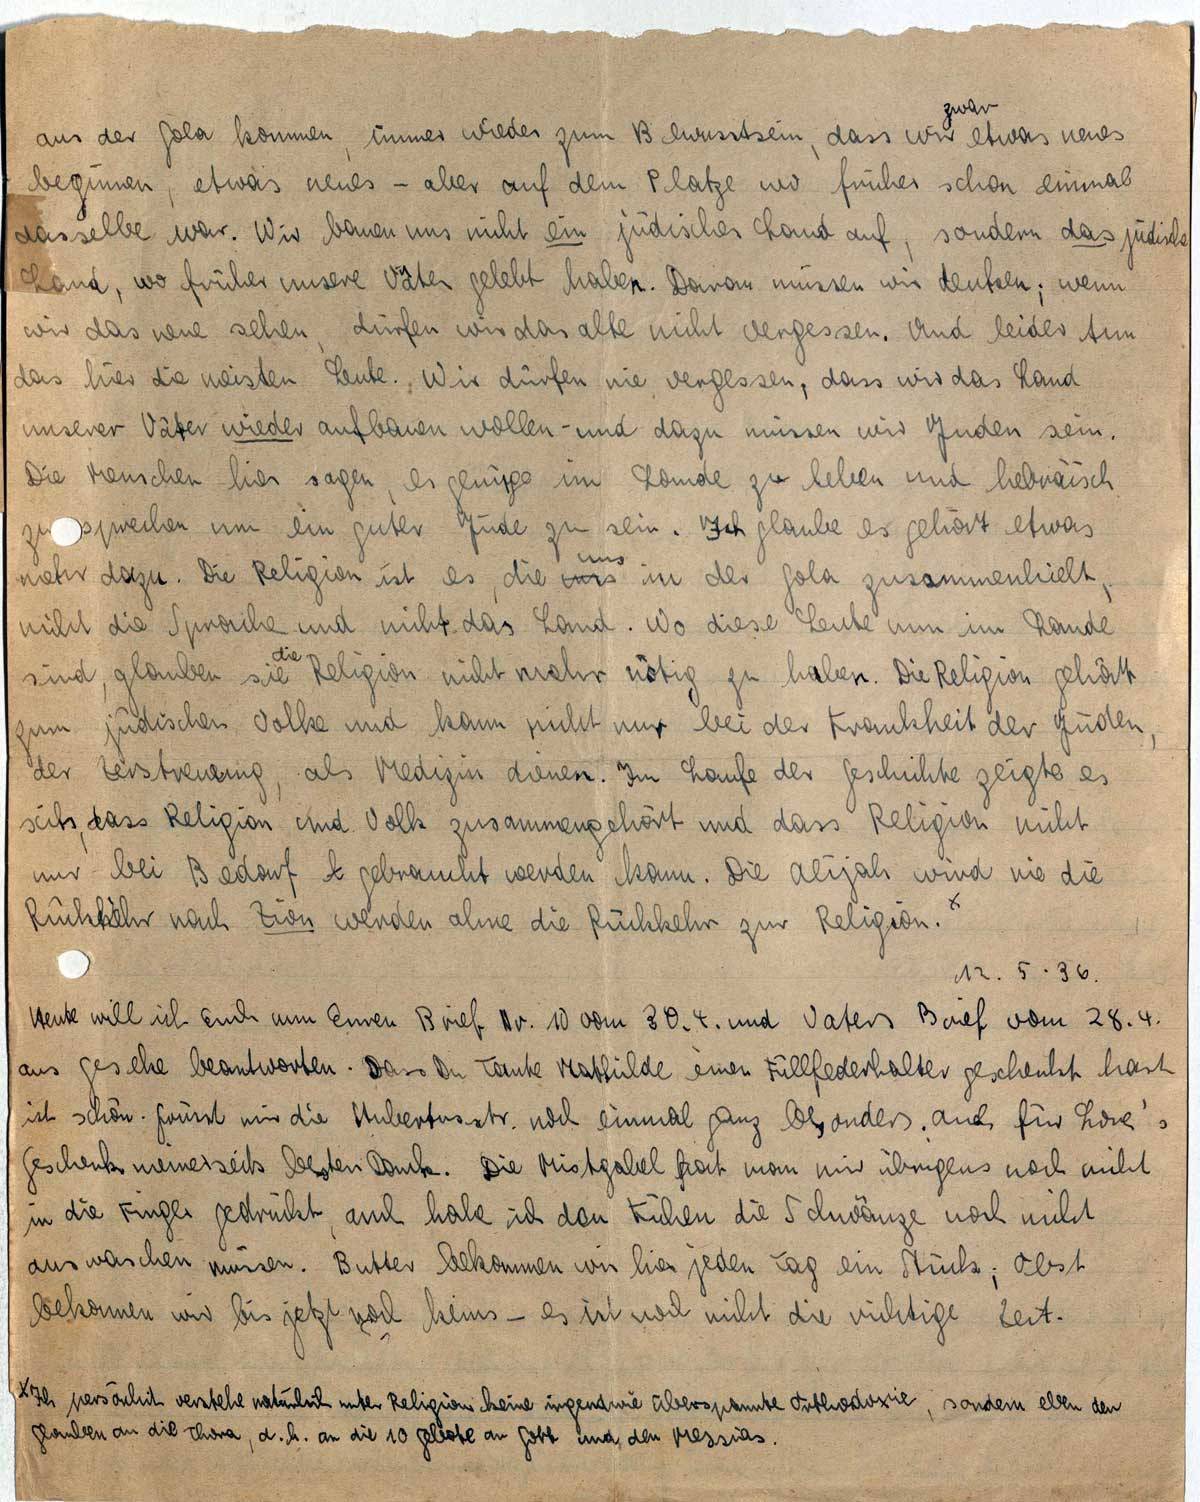 aus der Gola kommen, immer wieder zum Bewusstsein, dass wir zwar etwas neues
beginnen, etwas neues – aber auf dem Platze wo früher schon einmal
dasselbe war. Wir bauen uns nicht ein jüdisches Land auf, sondern das jüdische
Land, wo früher unsere Väter gelebt haben. Daran müssen wir denken; wenn
wir das neue sehen, dürfen wir das alte nicht vergessen. Und leider tun
das hier die meisten Leute. Wir dürfen nie vergessen, dass wir das Land
unserer Väter wieder aufbauen wollen – und dazu müssen wir Juden sein.
Die Menschen hier sagen, es genüge im Lande zu leben und hebräisch
zu sprechen um ein guter Jude zu sein. Ich glaube es gehört etwas
mehr dazu. Die Religion ist es, die uns in der Gola zusammenhielt,
nicht die Sprache und nicht das Land. Wo diese Leute nun im Lande
sind, glauben sie die Religion nicht mehr nötig zu haben. Die Religion gehört
zum jüdischen Volke und kann nicht nur bei der Krankheit der Juden,
der Zerstreuung, als Medizin dienen. Im Laufe der Geschichte zeigte es
sich, dass Religion und Volk zusammengehört und dass Religion nicht
nur bei Bedarf gebraucht werden kann. Die Alijah wird nie die
Rückkehr nach Zion werden ohne die Rückkehr zur Religion. x
12. 5. 36.
Heute will ich Euch nun Euren Brief Nr. 10 vom 30.4. und Vaters Brief vom 28.4.
aus Geseke beantworten. Dass Du Tante Mathilde einen Füllfederhalter geschenkt hast
ist schön. Grüsst mir die Hubertusstr. noch einmal ganz besonders. Auch für Lore's
Geschenk meinerseits besten Dank. Die Mistgabel hat man mir übrigens noch nicht
in die Finger gedrückt, auch habe ich den Kühen die Schwänze noch nicht
auswaschen müssen. Butter bekommen wir hier jeden Tag ein Stück; Obst
bekommen wir bis jetzt noch keins – es ist noch nicht die richtige Zeit.
x Ich persönlich verstehe natürlich unter Religion keine irgendwie überspannte Orthodoxie, sondern eben den
Glauben an die Thora, d.h. an die 10 Gebote an Gott und den Messias.